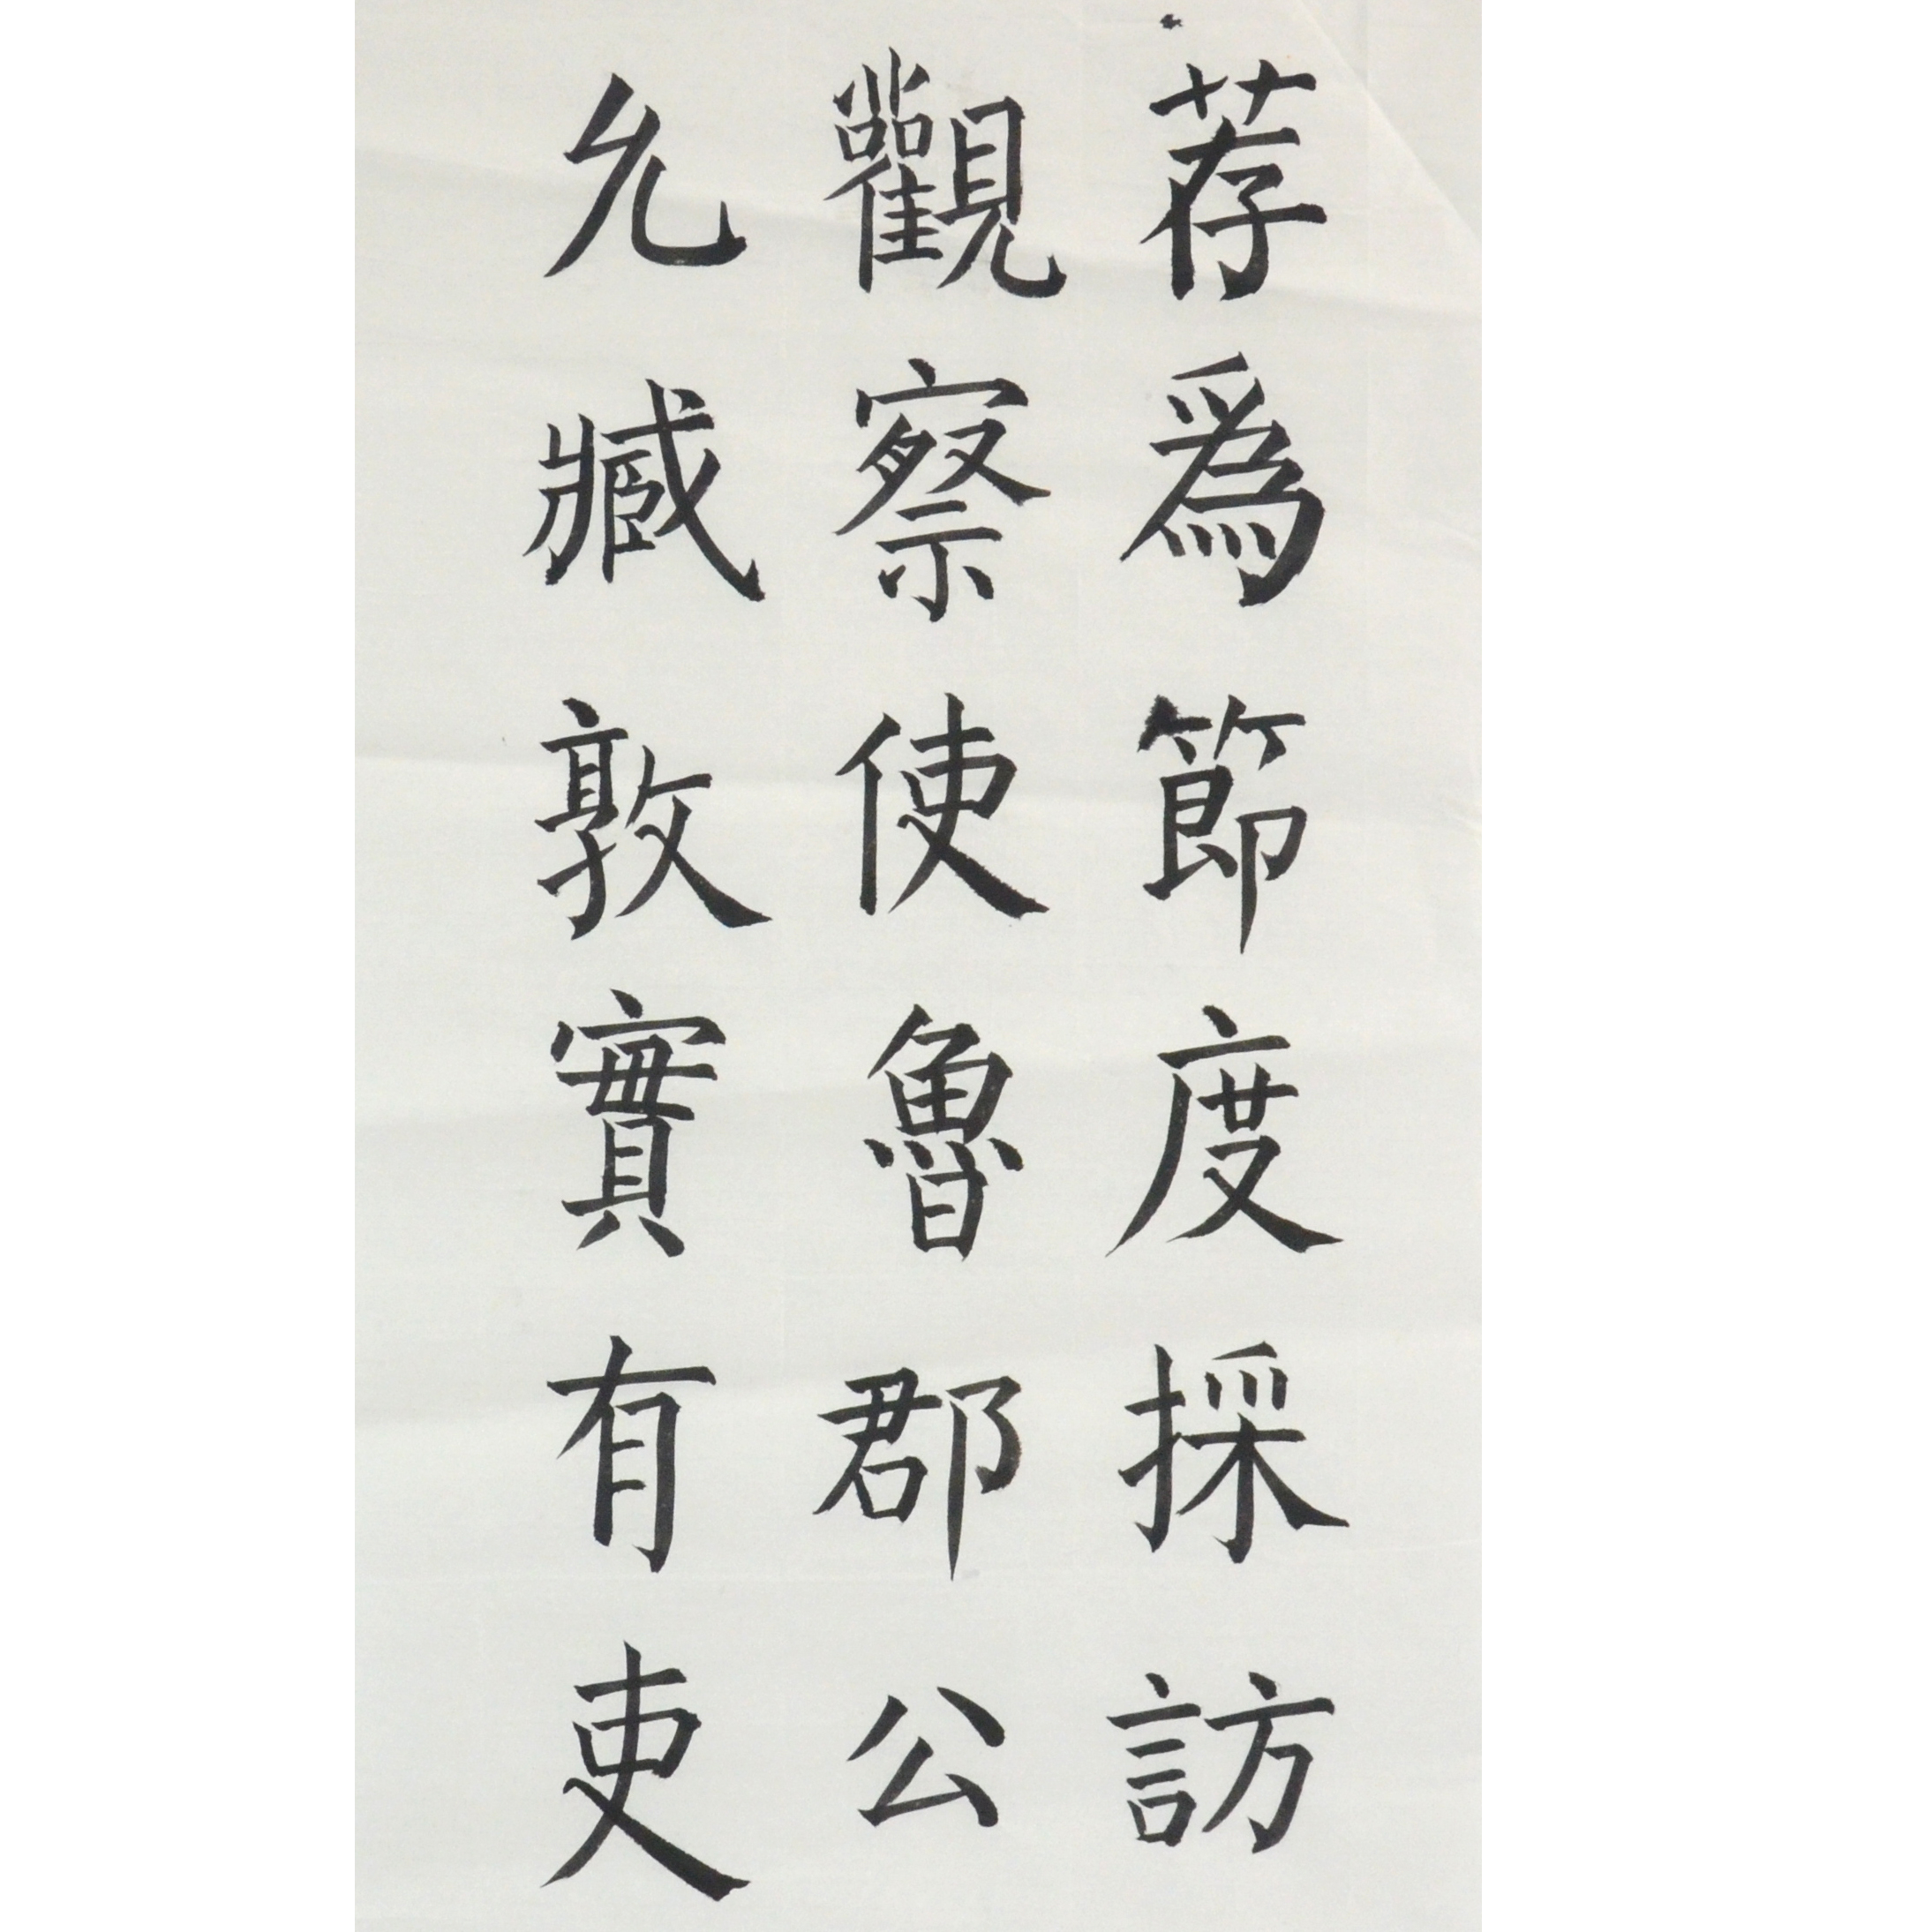 荐爲節度採訪
觀察使魯郡公
允臧敦實有吏